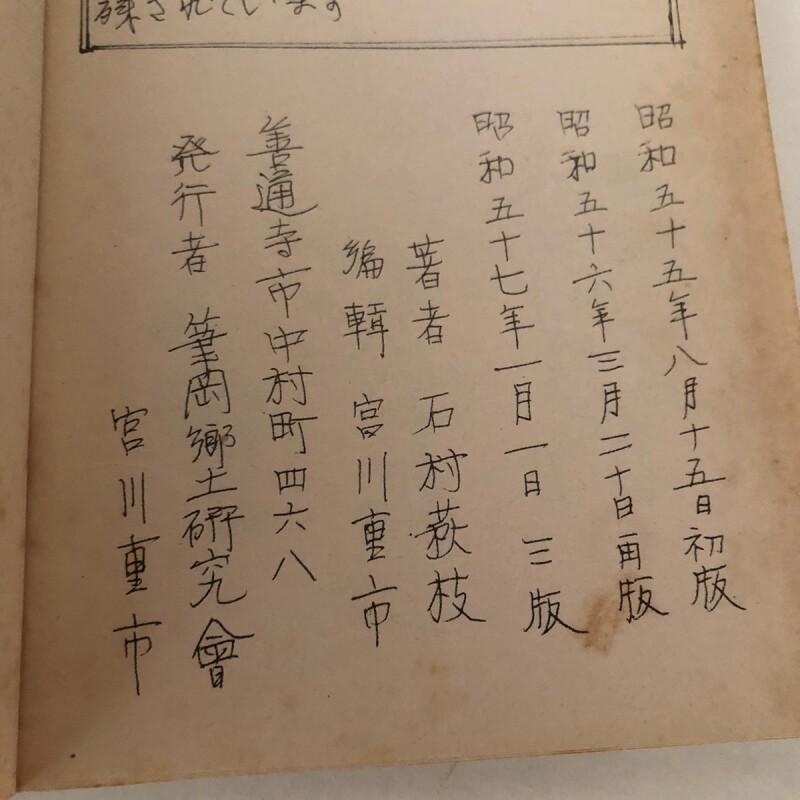 残されています
昭和五十五年八月十五日初版
昭和五十六年三月二十日再版
昭和五十七年一月一日三版
著者 石村萩枝
編輯 宮川重市
善通寺市中村町四六八
発行者 筆岡郷土研究會
宮川重市